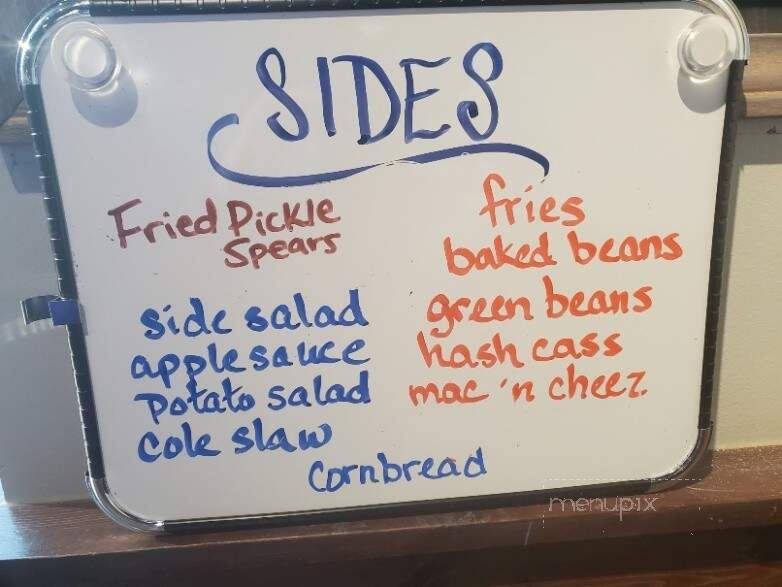 SIDES
Fried Pickle
Spears
side salad
applesauce
Potato salad
Cole slaw
fries
baked beans
green beans
hash cass
mac 'n cheez.
Cornbread
menupix